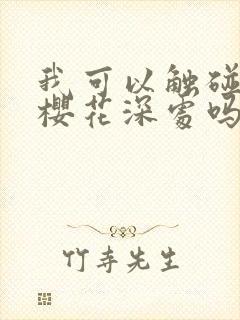 我可以触碰
樱花深处吗
竹寺先生